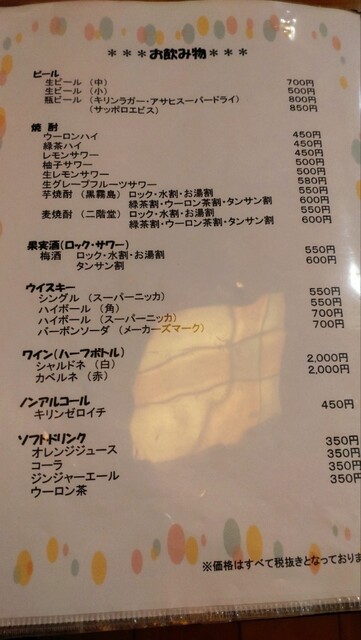 ＊＊＊お飲み物＊＊＊
ビール
生ビール（中） 700円
生ビール（小） 500円
瓶ビール（キリンラガー・アサヒスーパードライ） 800円
（サッポロエビス） 850円
焼酎
ウーロンハイ 450円
緑茶ハイ 450円
レモンサワー 450円
柚子サワー 500円
生レモンサワー 500円
生グレープフルーツサワー 580円
芋焼酎（黒霧島）ロック・水割・お湯割 550円
緑茶割・ウーロン茶割・タンサン割 600円
麦焼酎（二階堂）ロック・水割・お湯割 550円
緑茶割・ウーロン茶割・タンサン割 600円
果実酒(ロック・サワー)
梅酒 ロック・水割・お湯割 550円
タンサン割 600円
ウイスキー
シングル（スーパーニッカ） 550円
ハイボール（角） 550円
ハイボール（スーパーニッカ） 700円
バーボンソーダ（メーカーズマーク） 700円
ワイン(ハーフボトル)
シャルドネ（白） 2,000円
カベルネ（赤） 2,000円
ノンアルコール
キリンゼロイチ 450円
ソフトドリンク
オレンジジュース 350円
コーラ 350円
ジンジャーエール 350円
ウーロン茶 350円
※価格はすべて税抜きとなっておりま